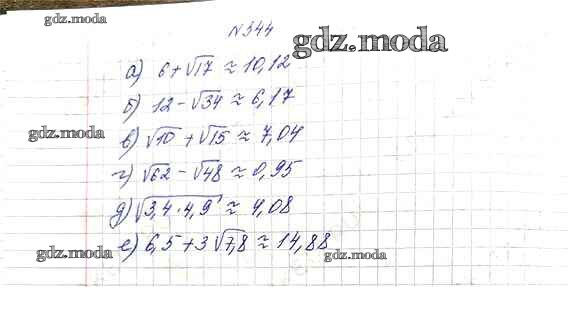 gdz.moda
№344
gdz.moda
а) 6+√17 ≈ 10,12
б) 12-√34 ≈ 6,17
gdz.moda
в) √10 + √15 ≈ 7,04
г) √62 - √48 ≈ 0,95
д) √3,4·4,9 ≈ 4,08
е) 6,5+3√7,8 ≈ 14,88
gdz.moda
gdz.moda